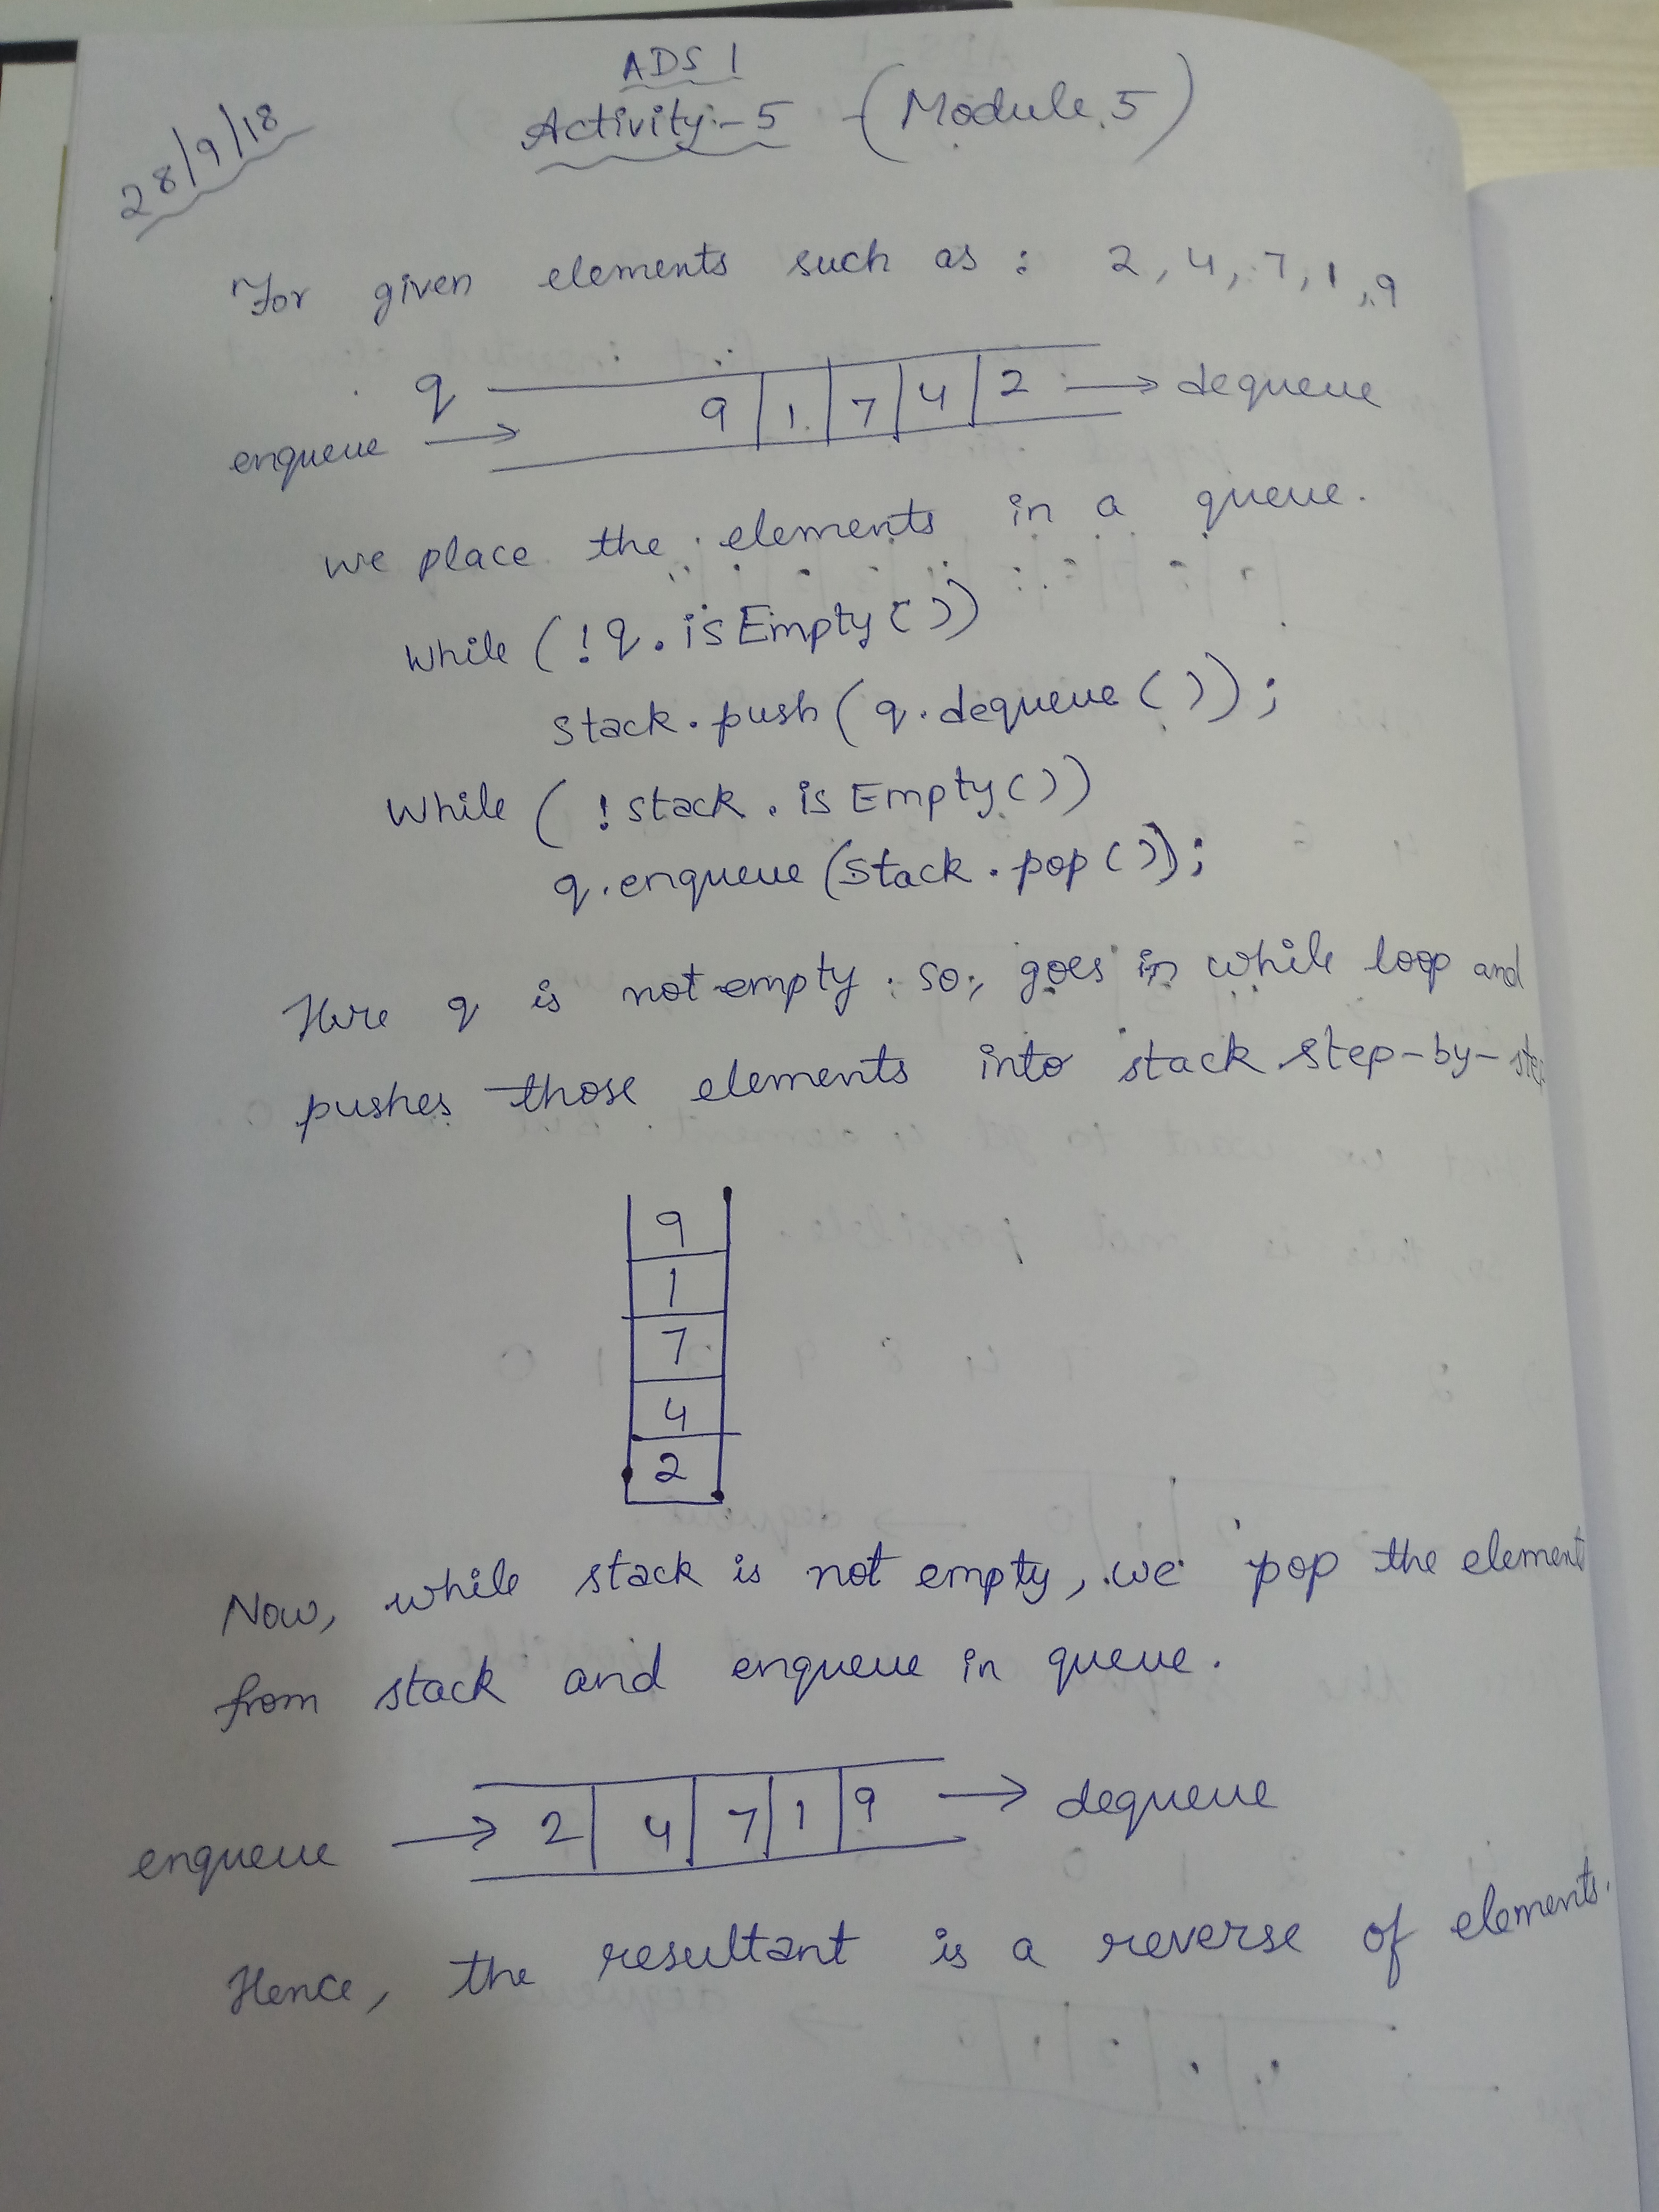 ADS 1
28/9/18
Activity:-5 - (Module 5)
For given elements such as : 2, 4, 7, 1, 9
q 9 1 7 4 2 → dequeue
enqueue →
we place the elements in a queue.
while (!q.isEmpty())
stack.push(q.dequeue());
while (!stack.isEmpty())
q.enqueue(stack.pop());
Here q is not empty. so, goes in while loop and
pushes those elements into stack step-by-ste
9
1
7
4
2
Now, while stack is not empty, we pop the element
from stack and enqueue in queue.
enqueue → 2 4 7 1 9 → dequeue
Hence, the resultant is a reverse of elements.